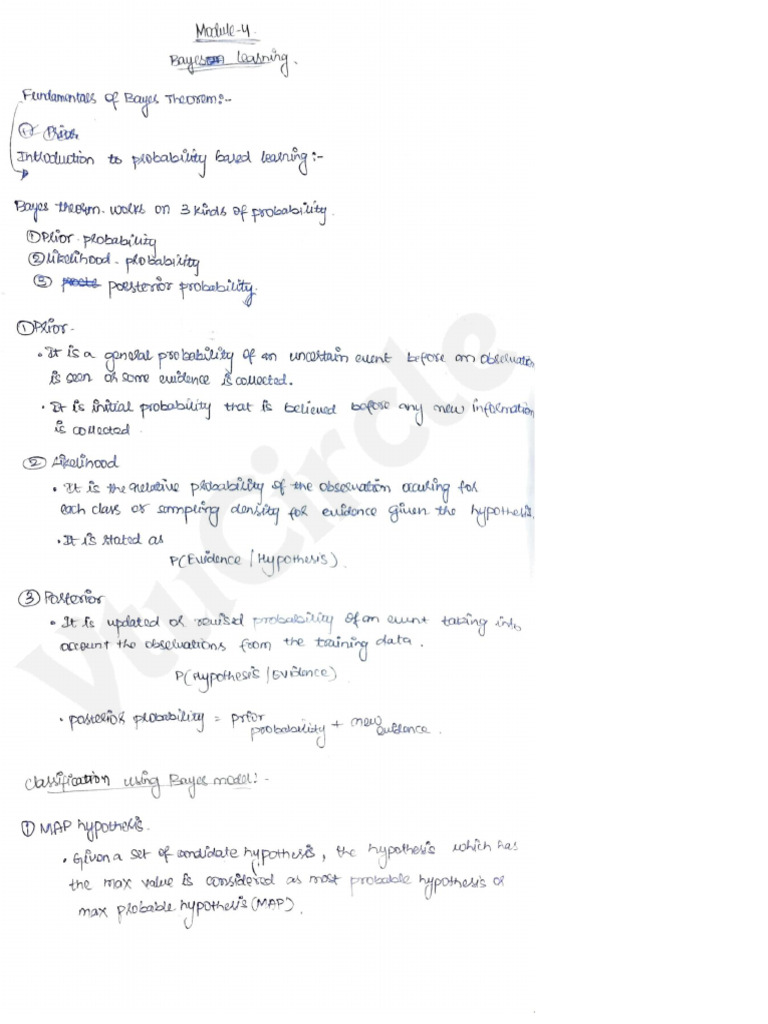 Module-4.
Bayesian learning.
Fundamentals of Bayes Theorem:-
① Prior
Introduction to probability based learning:-
Bayes theorm works on 3 kinds of probability.
① Prior probability
② Likelihood - probability
③ poesterior probability.
① Prior -
• It is a general probability of an uncertain event before an observation
is seen or some evidence is collected.
• It is initial probability that is believed before any new information
is collected.
② Likelihood
• It is the relative probability of the observation occuring for
each class or sampling density for evidence given the hypothesis.
• It is stated as
P(Evidence / Hypothesis).
③ Posterior
• It is updated or revised probability of an event taking into
account the observations from the training data.
P(Hypothesis / Evidence)
• posterior probability = prior probability + new evidence.
classification using Bayes model:-
① MAP hypothesis.
• Given a set of candidate hypothesis, the hypothesis which has
the max value is considered as most probable hypothesis or
max probable hypothesis (MAP).
VtuCircle